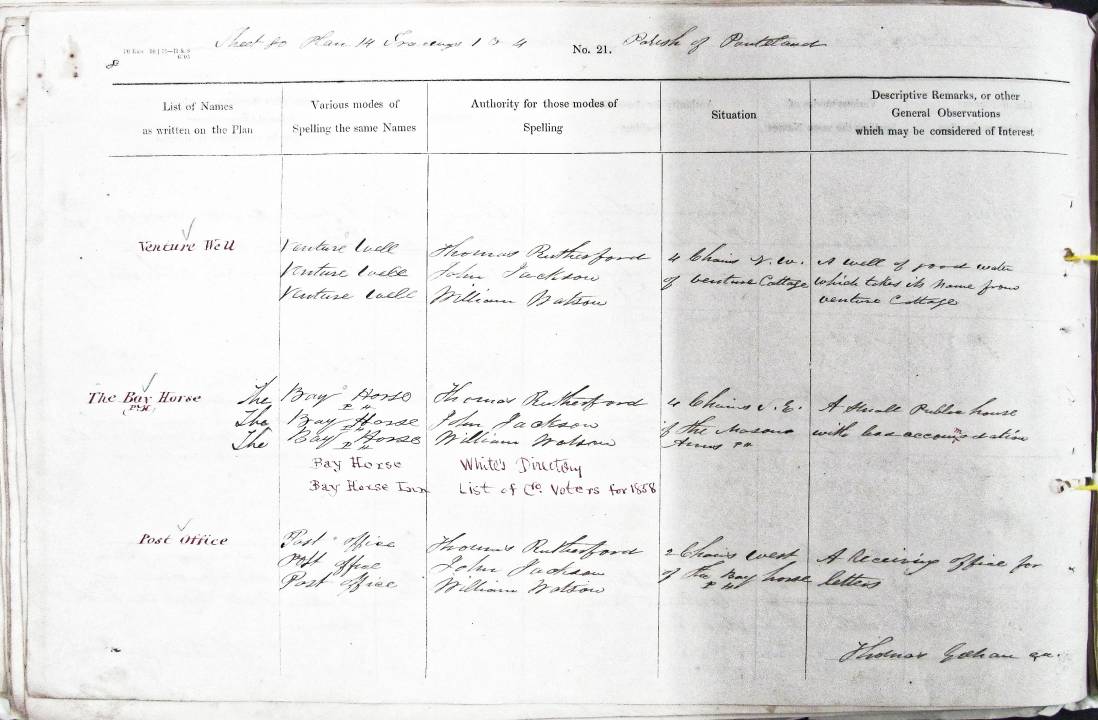 Sheet 80 Plan 14 Tracings 1 3 4 No. 21. Parish of Ponteland
List of Names
as written on the Plan
Various modes of
Spelling the same Names
Authority for those modes of
Spelling
Situation
Descriptive Remarks, or other
General Observations
which may be considered of Interest
Venture Well
Venture Well
Venture Well
Venture Well
Thomas Rutherford
John Jackson
William Watson
4 Chains N.W.
of Venture Cottage
A well of good water
which takes its name from
Venture Cottage
The Bay Horse
(P.H.)
The Bay Horse
P H
The Bay Horse
P H
The Bay Horse
P H
Bay Horse
Bay Horse Inn
Thomas Rutherford
John Jackson
William Watson
White's Directory
List of Co. Voters for 1858
4 Chains S.E.
of the Masons
Arms PH
A small Public house
with bad accommodation
Post Office
Post office
Post office
Post office
Thomas Rutherford
John Jackson
William Watson
2 Chains West
of the Bay horse
P H
A Receiving office for
letters
Thomas